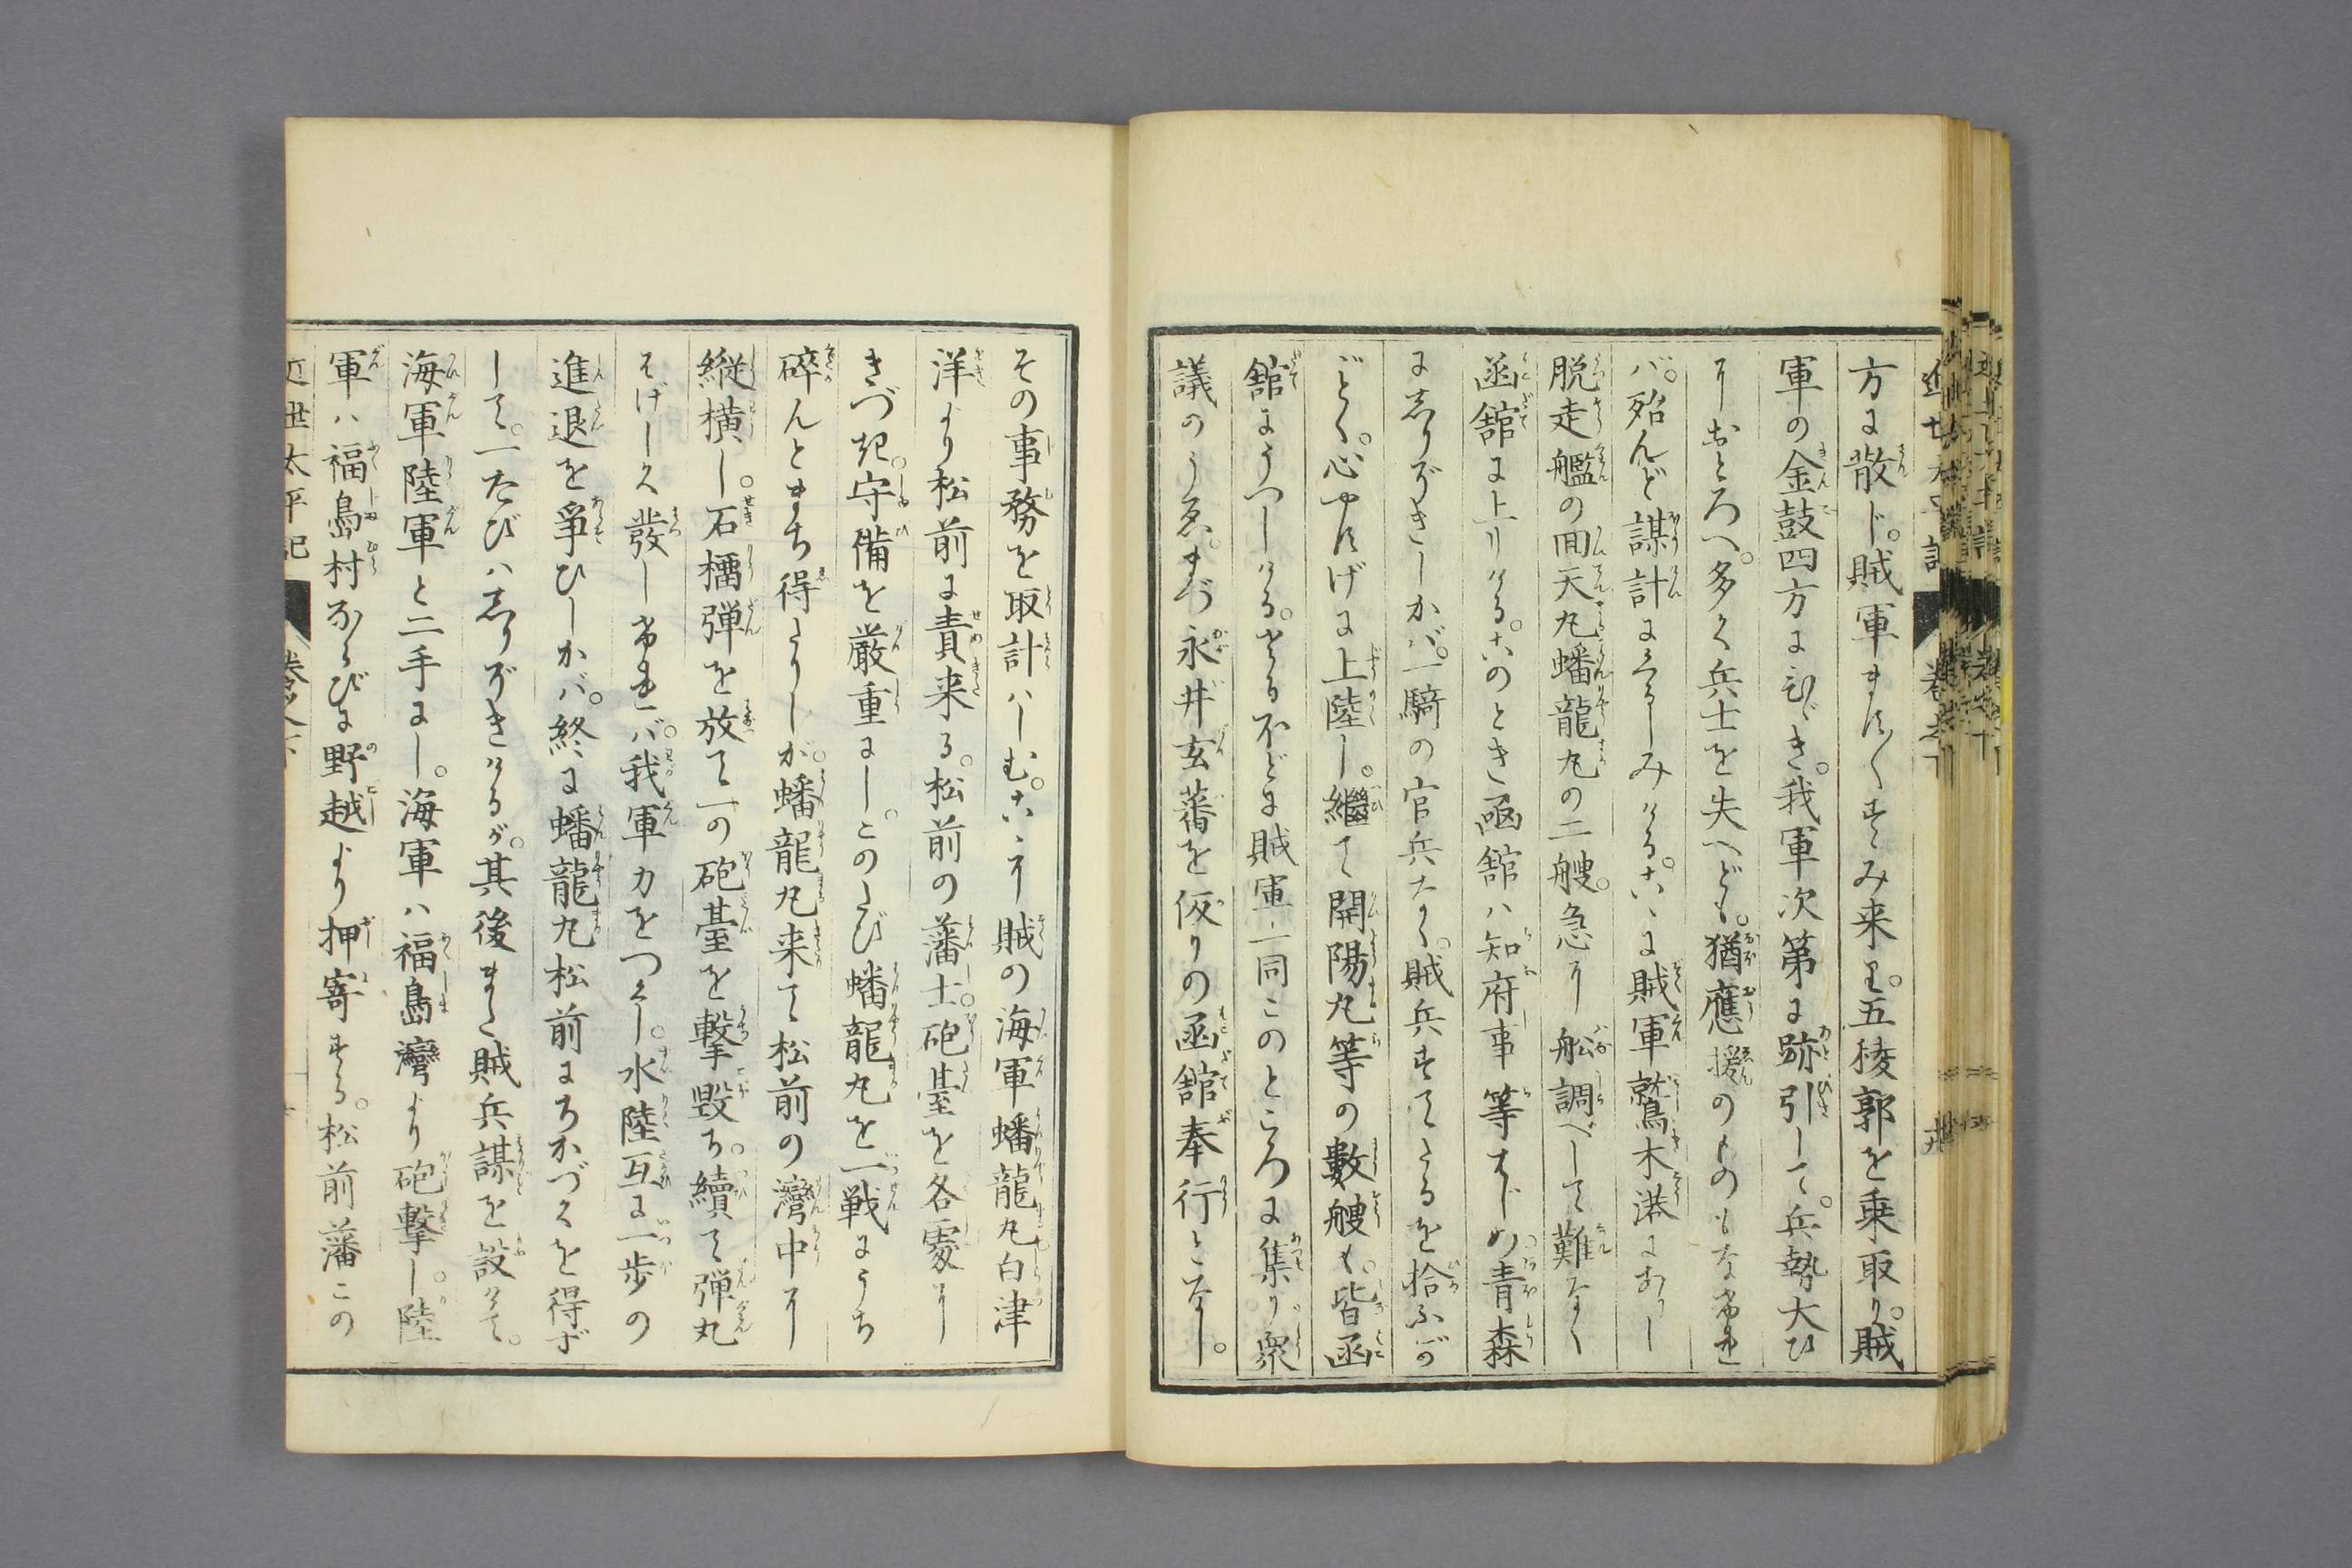 方に散じ。賊軍ます〱すゝみ来り。五稜郭を乗取り。賊
軍の金鼓四方にひゞき。我軍次第に跡引して。兵勢大ひ
におとろへ。多く兵士を失へども。猶應援のものもなけれ
バ。殆んど謀計にくるしみける。こゝに賊軍鷲木港にありし
脱走艦の回天丸蟠龍丸の二艘。急に舩調べして難なく
函舘に上りける。このとき函舘ハ知府事等はじめ。青森
にしりぞきしかバ。一騎の官兵なく。賊兵すてたるを拾ふが
ごとく。心やすげに上陸し。繼て開陽丸等の數艘も。皆函
舘にうつしける。さるほどに賊軍一同このところに集り衆
議のうゑ。まづ永井玄蕃を仮りの函舘奉行となし。
その事務を取計ハしむ。こゝに賊の海軍蟠龍丸白津
洋より松前に責来る。松前の藩士。砲臺を各處に
きづき。守備を厳重にし。このたび蟠龍丸を一戦にうち
碎んとまち得たりしが。蟠龍丸来て松前の灣中に
縦横し。石榴弾を放て一の砲臺を撃毀ち。續て弾丸
はげしく發しけれバ。我軍力をつくし。水陸互に一歩の
進退を爭ひしかバ。終に蟠龍丸松前にちかづくを得ず
して。一たびハしりぞきけるが。其後また賊兵謀を設けて。
海軍陸軍と二手にし。海軍ハ福島灣より砲撃し。陸
軍ハ福島村ならびに野越より押寄する。松前藩この
近世太平記